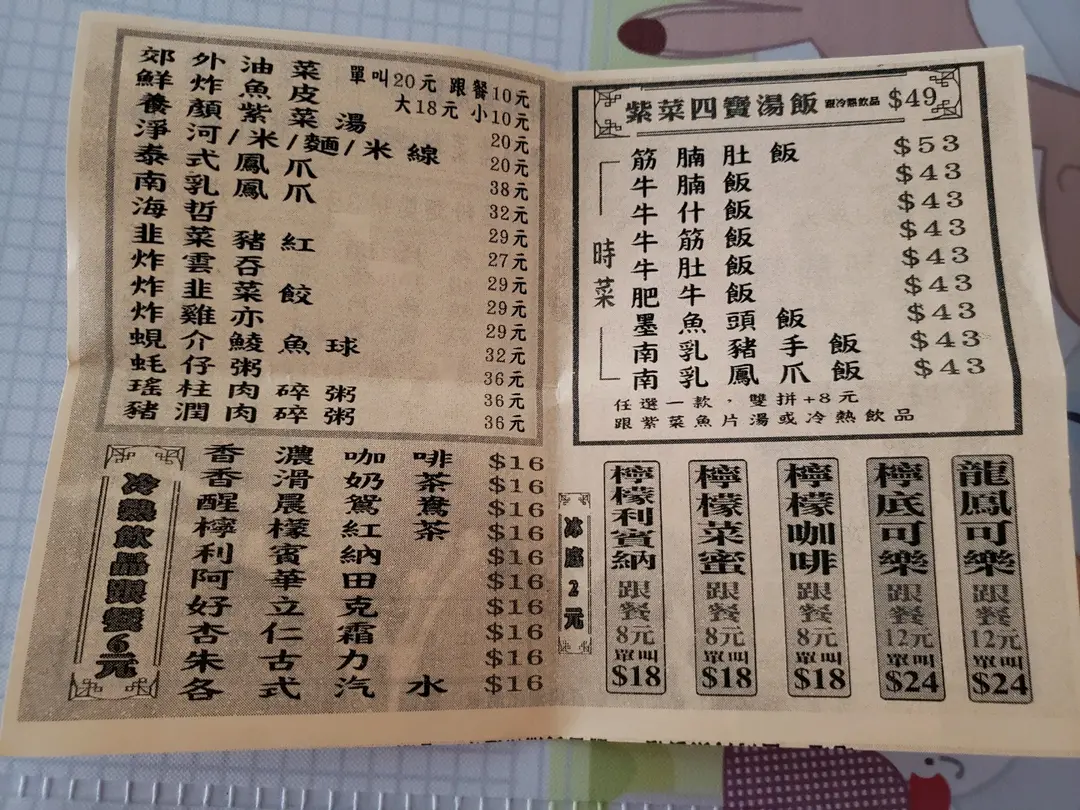 郊外油菜 單叫20元 跟餐10元
鮮炸魚皮 大18元 小10元
養顏紫菜湯 20元
淨河/米/麵/米線 20元
泰式鳳爪 38元
南乳鳳爪 32元
海哲 29元
韭菜豬紅 27元
炸雲吞 29元
炸韭菜餃 29元
炸雞亦 29元
蜆介鯪魚球 32元
蚝仔粥 36元
瑤柱肉碎粥 36元
豬潤肉碎粥 36元
冷熱飲品跟餐6元
香濃咖啡 $16
香滑奶茶 $16
醒晨鴛鴦 $16
檸檬紅茶 $16
利賓納 $16
阿華田 $16
好立克 $16
杏仁霜 $16
朱古力 $16
各式汽水 $16
紫菜四寶湯飯 跟冷熱飲品 $49
時菜
筋腩肚飯 $53
牛腩飯 $43
牛什飯 $43
牛筋飯 $43
牛肚飯 $43
肥牛飯 $43
墨魚頭飯 $43
南乳豬手飯 $43
南乳鳳爪飯 $43
任選一款，雙拼+8元
跟紫菜魚片湯或冷熱飲品
檸檬利賓納 跟餐8元 單叫$18
檸檬菜蜜 跟餐8元 單叫$18
檸檬咖啡 跟餐8元 單叫$18
檸底可樂 跟餐12元 單叫$24
龍鳳可樂 跟餐12元 單叫$24